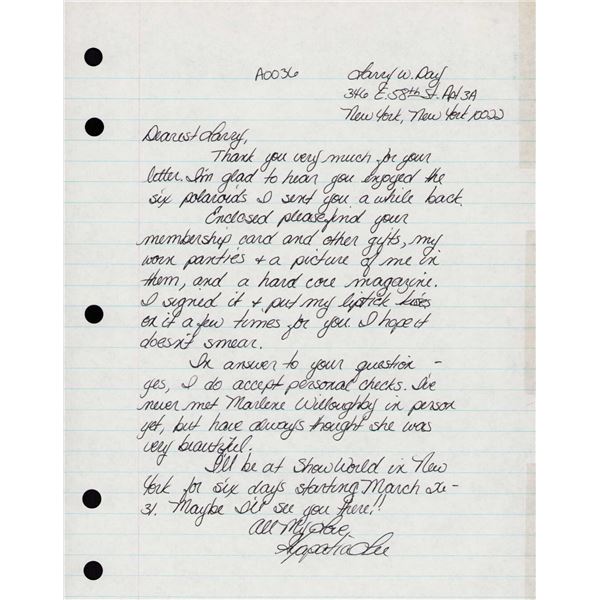 A0036
Larry W. Day
346 E. 58th St. Apt 3A
New York, New York 10022
Dearest Larry,
Thank you very much for your
letter. I'm glad to hear you enjoyed the
six polaroids I sent you a while back.
Enclosed please find your
membership card and other gifts, my
worn panties + a picture of me in
them, and a hard core magazine.
I signed it + put my lipstick kisses
on it a few times for you. I hope it
doesn't smear.
In answer to your question -
yes, I do accept personal checks. I've
never met Marlene Willoughby in person
yet, but have always thought she was
very beautiful.
I'll be at Show World in New
York for six days starting March 26-
31. Maybe I'll see you there!!
All My Love,
Hyapatia Lee